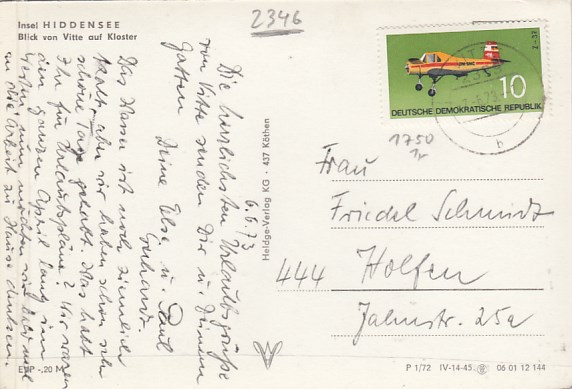 Insel HIDDENSEE
Blick von Vitte auf Kloster
2346
DEUTSCHE DEMOKRATISCHE REPUBLIK
10
Z-37
1750
6.6.73
Die herzlichsten Urlaubsgrüße
von Vitte senden Dir u. Deinem
Gatten
Deine Else u. Paul
Gerhardt
Das Wasser ist noch ziemlich
kalt, aber wir haben schon sehr
schöne Tage gehabt. Was habt
Ihr für Urlaubspläne? Wir waren
den ganzen April lang im
nun möchten wir bald mal
an die Arbeit zu Hause denken.
Heldge-Verlag KG · 437 Köthen
Frau
Friedel Schmidt
444 Wolfen
Jahnstr. 25a
EVP -,20 M
P 1/72 IV-14-45 06 01 12 144